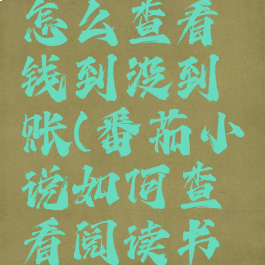 怎么查看
钱到没到
账(番茄小
说如何查
看阅读书